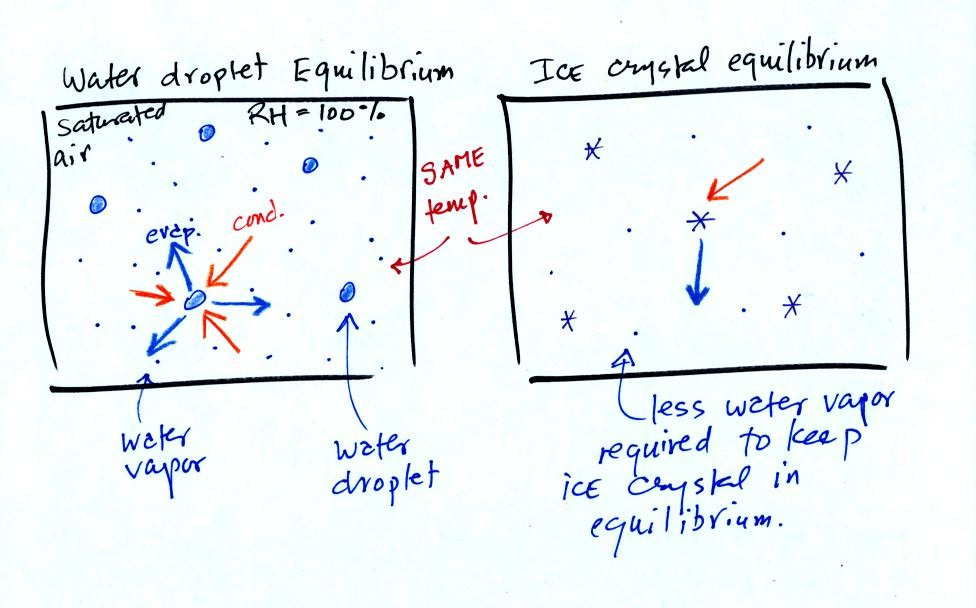 Water droplet Equilibrium
ICE crystal equilibrium
saturated
air
RH = 100%
SAME
temp.
evap.
cond.
water
vapor
water
droplet
less water vapor
required to keep
ICE crystal in
equilibrium.